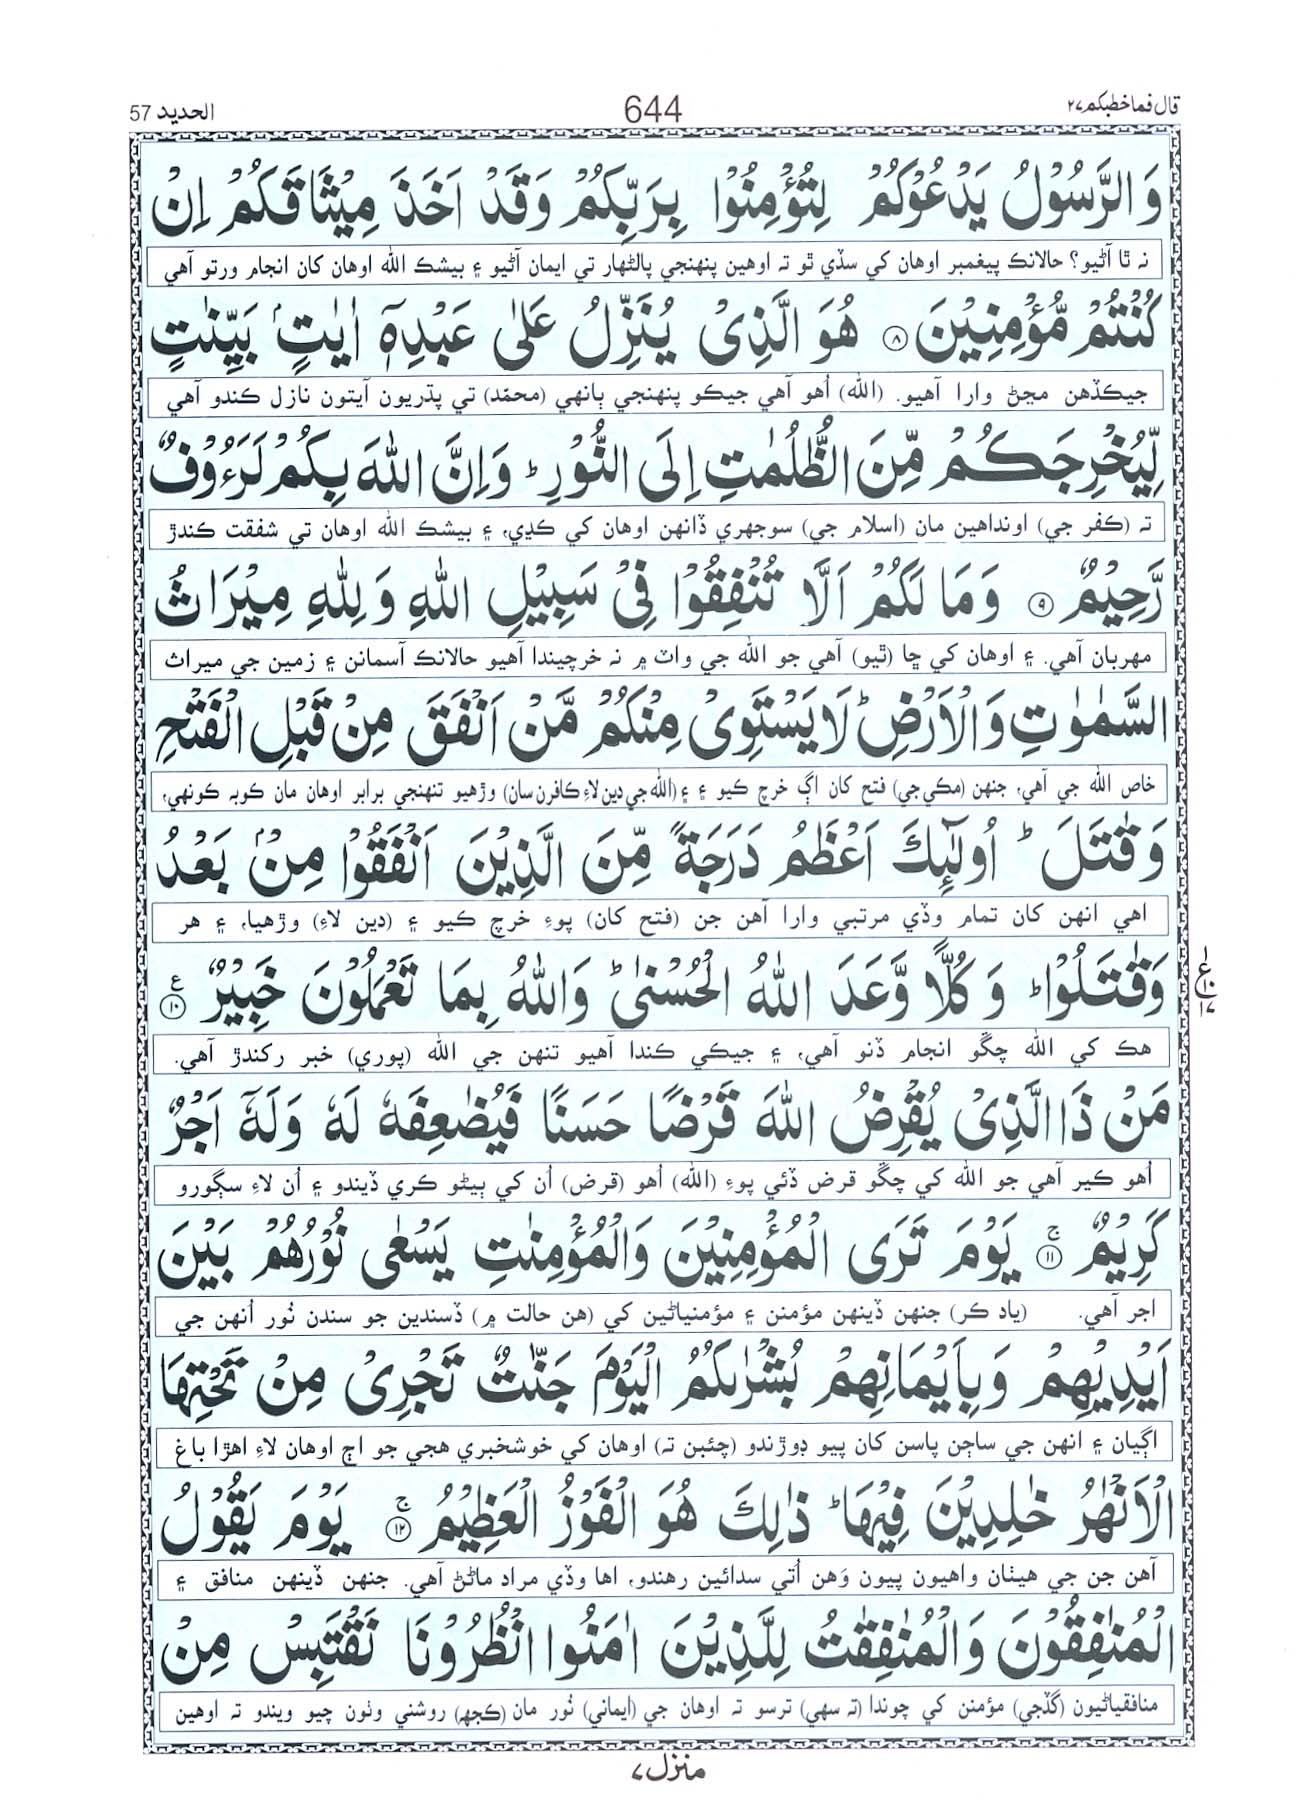 قال فما خطبكم ٢٧
644
الحديد 57
وَالرَّسُوْلُ يَدْعُوْكُمْ لِتُؤْمِنُوْا بِرَبِّكُمْ وَقَدْ اَخَذَ مِيْثَاقَكُمْ اِنْ
نہ ٿا آڻيو؟ حالانڪ پيغمبر اوهان کي سڏي ٿو تہ اوهين پنهنجي پالڻهار تي ايمان آڻيو ۽ بيشڪ الله اوهان کان انجام ورتو آهي
كُنْتُمْ مُّؤْمِنِيْنَ ۝٨ هُوَ الَّذِىْ يُنَزِّلُ عَلٰى عَبْدِهٖۤ اٰيٰتٍۭ بَيِّنٰتٍ
جيڪڏهن مڃڻ وارا آهيو. (الله) اُهو آهي جيڪو پنهنجي ٻانهي (محمّد) تي پڌريون آيتون نازل ڪندو آهي
لِّيُخْرِجَكُمْ مِّنَ الظُّلُمٰتِ اِلَى النُّوْرِ ؕ وَاِنَّ اللّٰهَ بِكُمْ لَرَءُوْفٌ
تہ (ڪفر جي) اونداهين مان (اسلام جي) سوجهري ڏانهن اوهان کي ڪڍي، ۽ بيشڪ الله اوهان تي شفقت ڪندڙ
رَّحِيْمٌ ۝٩ وَمَا لَكُمْ اَلَّا تُنْفِقُوْا فِىْ سَبِيْلِ اللّٰهِ وَلِلّٰهِ مِيْرَاثُ
مهربان آهي. ۽ اوهان کي ڇا (ٿيو) آهي جو الله جي واٽ ۾ نہ خرچيندا آهيو حالانڪ آسمانن ۽ زمين جي ميراث
السَّمٰوٰتِ وَالْاَرْضِ ؕ لَا يَسْتَوِىْ مِنْكُمْ مَّنْ اَنْفَقَ مِنْ قَبْلِ الْفَتْحِ
خاص الله جي آهي، جنهن (مڪي جي) فتح کان اڳ خرچ ڪيو ۽ ۽ (الله جي دين لاءِ ڪافرن سان) وڙهيو تنهنجي برابر اوهان مان ڪوبہ ڪونهي،
وَقٰتَلَ ؕ اُولٰٓئِكَ اَعْظَمُ دَرَجَةً مِّنَ الَّذِيْنَ اَنْفَقُوْا مِنْۢ بَعْدُ
اهي انهن کان تمام وڏي مرتبي وارا آهن جن (فتح کان) پوءِ خرچ ڪيو ۽ (دين لاءِ) وڙهيا، ۽ هر
وَقٰتَلُوْا ؕ وَكُلًّا وَّعَدَ اللّٰهُ الْحُسْنٰى ؕ وَاللّٰهُ بِمَا تَعْمَلُوْنَ خَبِيْرٌ ۝١٠ ع
هڪ کي الله چڱو انجام ڏنو آهي، ۽ جيڪي ڪندا آهيو تنهن جي الله (پوري) خبر رکندڙ آهي.
مَنْ ذَا الَّذِىْ يُقْرِضُ اللّٰهَ قَرْضًا حَسَنًا فَيُضٰعِفَهٗ لَهٗ وَلَهٗۤ اَجْرٌ
اُهو ڪير آهي جو الله کي چڱو قرض ڏئي پوءِ (الله) اُهو (قرض) اُن کي ٻيڻو ڪري ڏيندو ۽ اُن لاءِ سڳورو
كَرِيْمٌ ۝١١ ج يَوْمَ تَرَى الْمُؤْمِنِيْنَ وَالْمُؤْمِنٰتِ يَسْعٰى نُوْرُهُمْ بَيْنَ
اجر آهي. (ياد ڪر) جنهن ڏينهن مؤمنن ۽ مؤمنياڻين کي (هن حالت ۾) ڏسندين جو سندن نُور اُنهن جي
اَيْدِيْهِمْ وَبِاَيْمَانِهِمْ بُشْرٰىكُمُ الْيَوْمَ جَنّٰتٌ تَجْرِىْ مِنْ تَحْتِهَا
اڳيان ۽ انهن جي ساڄن پاسن کان پيو ڊوڙندو (چئبن تہ) اوهان کي خوشخبري هجي جو اڄ اوهان لاءِ اهڙا باغ
الْاَنْهٰرُ خٰلِدِيْنَ فِيْهَا ؕ ذٰلِكَ هُوَ الْفَوْزُ الْعَظِيْمُ ۝١٢ ج يَوْمَ يَقُوْلُ
آهن جن جي هيٺان واهيون پيون وَهن اُتي سدائين رهندو، اها وڏي مراد ماڻڻ آهي. جنهن ڏينهن منافق ۽
الْمُنٰفِقُوْنَ وَالْمُنٰفِقٰتُ لِلَّذِيْنَ اٰمَنُوا انْظُرُوْنَا نَقْتَبِسْ مِنْ
منافقياڻيون (گڏجي) مؤمنن کي چوندا (تہ سهي) ترسو تہ اوهان جي (ايماني) نُور مان (ڪجهہ) روشني وٺون چيو ويندو تہ اوهين
منزل ٧